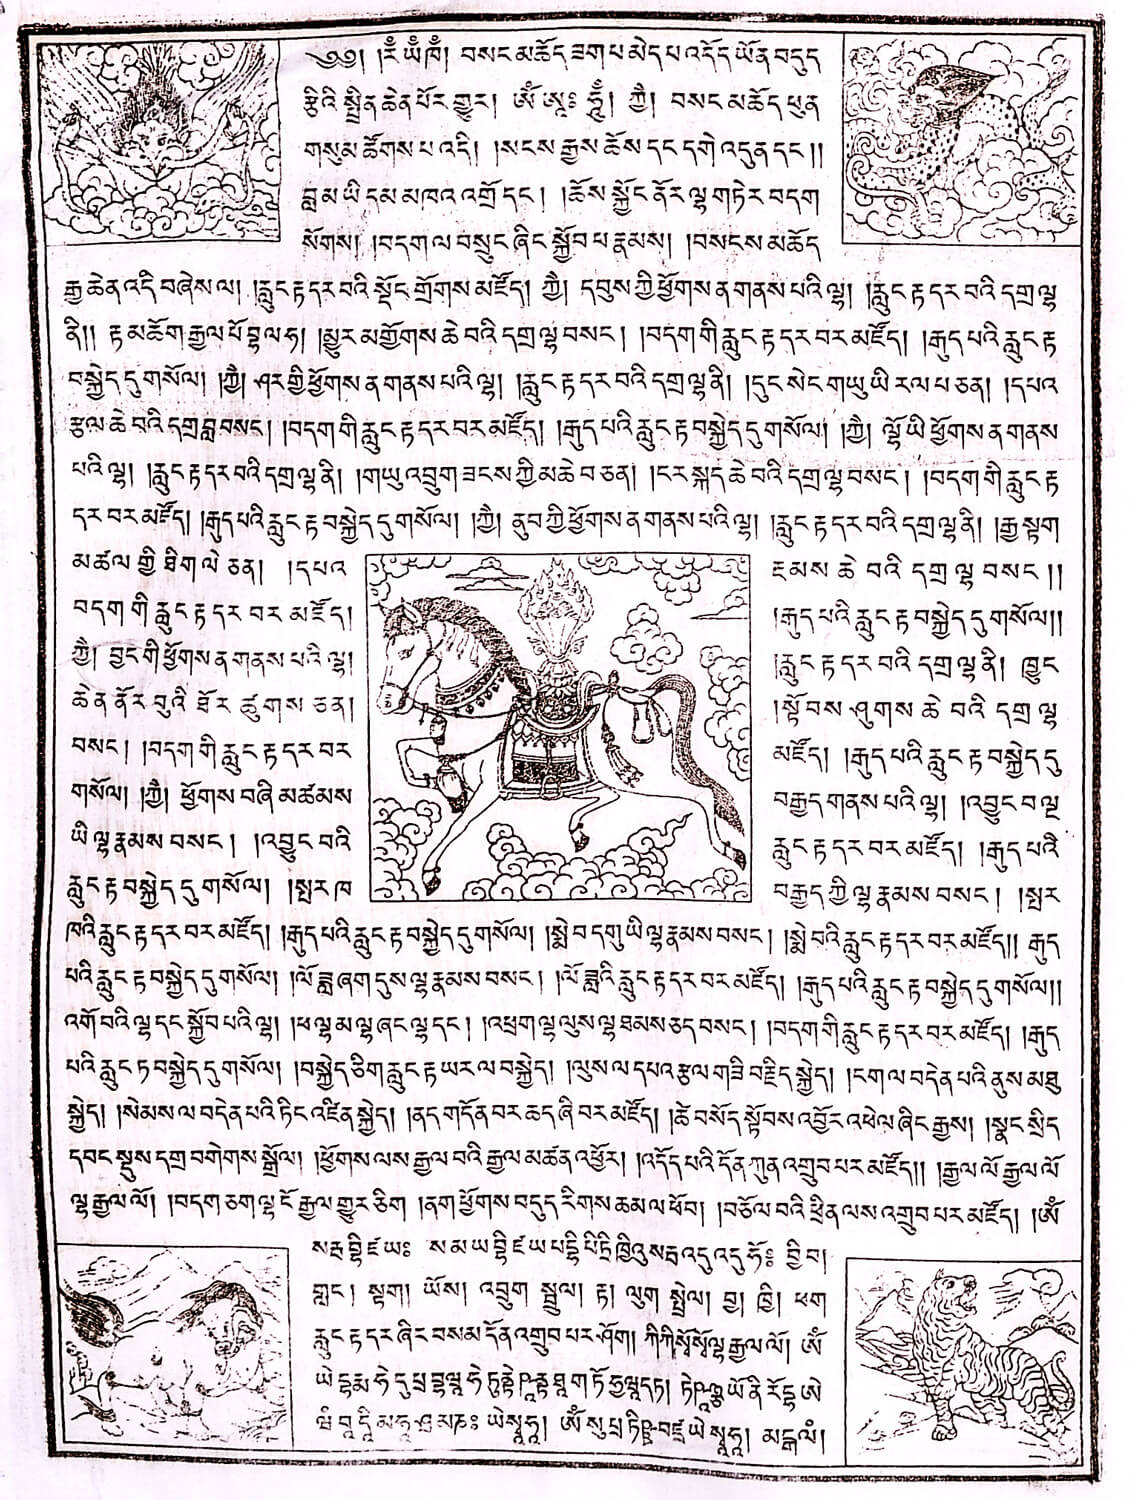 ༄༅། །རཾ་ཡཾ་ཁཾ། བསང་མཆོད་ཟག་པ་མེད་པ་འདོད་ཡོན་བདུད
རྩིའི་སྤྲིན་ཆེན་པོར་གྱུར། ཨོཾ་ཨཱཿ་ཧཱུྃ། ཀྱཻ། བསང་མཆོད་ཕུན
གསུམ་ཚོགས་པ་འདི། །སངས་རྒྱས་ཆོས་དང་དགེ་འདུན་དང་།།
བླ་མ་ཡི་དམ་མཁའ་འགྲོ་དང་། །ཆོས་སྐྱོང་ནོར་ལྷ་གཏེར་བདག
སོགས། །བདག་ལ་བསྲུང་ཞིང་སྐྱོབ་པ་རྣམས། །བསངས་མཆོད
རྒྱ་ཆེན་འདི་བཞེས་ལ། །རླུང་རྟ་དར་བའི་སྡོང་གྲོགས་མཛོད། ཀྱཻ། དབུས་ཀྱི་ཕྱོགས་ན་གནས་པའི་ལྷ། །རླུང་རྟ་དར་བའི་དགྲ་ལྷ
ནི།། རྟ་མཆོག་རྒྱལ་པོ་བྷ་ལ་ཧ། །མྱུར་མགྱོགས་ཆེ་བའི་དགྲ་ལྷ་བསང་། །བདག་གི་རླུང་རྟ་དར་བར་མཛོད། །རྒུད་པའི་རླུང་རྟ
བསྐྱེད་དུ་གསོལ། །ཀྱཻ། ཤར་གྱི་ཕྱོགས་ན་གནས་པའི་ལྷ། །རླུང་རྟ་དར་བའི་དགྲ་ལྷ་ནི། །དུང་སེང་གཡུ་ཡི་རལ་པ་ཅན། །དཔའ
རྩལ་ཆེ་བའི་དགྲ་བླ་བསང་། །བདག་གི་རླུང་རྟ་དར་བར་མཛོད། །རྒུད་པའི་རླུང་རྟ་བསྐྱེད་དུ་གསོལ། །ཀྱཻ། ལྷོ་ཡི་ཕྱོགས་ན་གནས
པའི་ལྷ། །རླུང་རྟ་དར་བའི་དགྲ་ལྷ་ནི། །གཡུ་འབྲུག་ཟངས་ཀྱི་མཆེ་བ་ཅན། །ངར་སྐད་ཆེ་བའི་དགྲ་ལྷ་བསང་། །བདག་གི་རླུང་རྟ
དར་བར་མཛོད། །རྒུད་པའི་རླུང་རྟ་བསྐྱེད་དུ་གསོལ། །ཀྱཻ། ནུབ་ཀྱི་ཕྱོགས་ན་གནས་པའི་ལྷ། །རླུང་རྟ་དར་བའི་དགྲ་ལྷ་ནི། །རྒྱ་སྟག
མཚལ་གྱི་ཐིག་ལེ་ཅན། །དཔའ ངམས་ཆེ་བའི་དགྲ་ལྷ་བསང་།།
བདག་གི་རླུང་རྟ་དར་བར་མཛོད། །རྒུད་པའི་རླུང་རྟ་བསྐྱེད་དུ་གསོལ།།
ཀྱཻ། བྱང་གི་ཕྱོགས་ན་གནས་པའི་ལྷ། །རླུང་རྟ་དར་བའི་དགྲ་ལྷ་ནི། ཁྱུང
ཆེན་ནོར་བུའི་ཐོར་ཚུགས་ཅན། །སྟོབས་ཤུགས་ཆེ་བའི་དགྲ་ལྷ
བསང་། །བདག་གི་རླུང་རྟ་དར་བར མཛོད། །རྒུད་པའི་རླུང་རྟ་བསྐྱེད་དུ
གསོལ། །ཀྱཻ། ཕྱོགས་བཞི་མཚམས བརྒྱད་གནས་པའི་ལྷ། །འབྱུང་བ་ལྔ
ཡི་ལྷ་རྣམས་བསང་། །འབྱུང་བའི རླུང་རྟ་དར་བར་མཛོད། །རྒུད་པའི
རླུང་རྟ་བསྐྱེད་དུ་གསོལ། །སྤར་ཁ བརྒྱད་ཀྱི་ལྷ་རྣམས་བསང་། །སྤར
ཁའི་རླུང་རྟ་དར་བར་མཛོད། །རྒུད་པའི་རླུང་རྟ་བསྐྱེད་དུ་གསོལ། །སྨེ་བ་དགུ་ཡི་ལྷ་རྣམས་བསང་། །སྨེ་བའི་རླུང་རྟ་དར་བར་མཛོད།། རྒུད
པའི་རླུང་རྟ་བསྐྱེད་དུ་གསོལ། །ལོ་ཟླ་ཞག་དུས་ལྷ་རྣམས་བསང་། །ལོ་ཟླའི་རླུང་རྟ་དར་བར་མཛོད། །རྒུད་པའི་རླུང་རྟ་བསྐྱེད་དུ་གསོལ།།
འགོ་བའི་ལྷ་དང་སྐྱོབ་པའི་ལྷ། །ཕ་ལྷ་མ་ལྷ་ཞང་ལྷ་དང་། །འཕྲག་ལྷ་ལུས་ལྷ་ཐམས་ཅད་བསང་། །བདག་གི་རླུང་རྟ་དར་བར་མཛོད། །རྒུད
པའི་རླུང་ཏ་བསྐྱེད་དུ་གསོལ། །བསྐྱེད་ཅིག་རླུང་རྟ་ཡར་ལ་བསྐྱེད། །ལུས་ལ་དཔའ་རྩལ་གཟི་བརྗིད་སྐྱེད། །ངག་ལ་བདེན་པའི་ནུས་མཐུ
སྐྱེད། །སེམས་ལ་བདེན་པའི་ཏིང་འཛིན་སྐྱེད། །ནད་གདོན་བར་ཆད་ཞི་བར་མཛོད། །ཚེ་བསོད་སྟོབས་འབྱོར་འཕེལ་ཞིང་རྒྱས། །སྣང་སྲིད
དབང་སྡུས་དགྲ་བགེགས་སྒྲོལ། །ཕྱོགས་ལས་རྒྱལ་བའི་རྒྱལ་མཚན་འཕྱོར། །འདོད་པའི་དོན་ཀུན་འགྲུབ་པར་མཛོད།། །རྒྱལ་ལོ་རྒྱལ་ལོ
ལྷ་རྒྱལ་ལོ། །བདག་ཅག་ལྷ་ངོ་རྒྱལ་གྱུར་ཅིག །ནག་ཕྱོགས་བདུད་རིགས་ཆམ་ལ་ཕོབ། །བཅོལ་བའི་ཕྲིན་ལས་འགྲུབ་པར་མཛོད། །ཨོཾ
ས་མ་ཡ ཧོཿ བྱི་བ།
གླང་། སྟག། ཡོས། འབྲུག སྦྲུལ། རྟ། ལུག སྤྲེལ། བྱ། ཁྱི། ཕག
རླུང་རྟ་དར་ཞིར་བསམ་དོན་འགྲུབ་པར་ཤོག། ཀི་ཀི་སྭོ་སྭོ་ལྷ་རྒྱལ་ལོ། ཨོཾ
ཡེ་དྷརྨཱ་ཧེ་ཏུ
ཨོཾ་སུ་པྲ་ཏིཥྛ་བཛྲ་ཡེ་སྭཱཧཱ། མངྒལཾ།